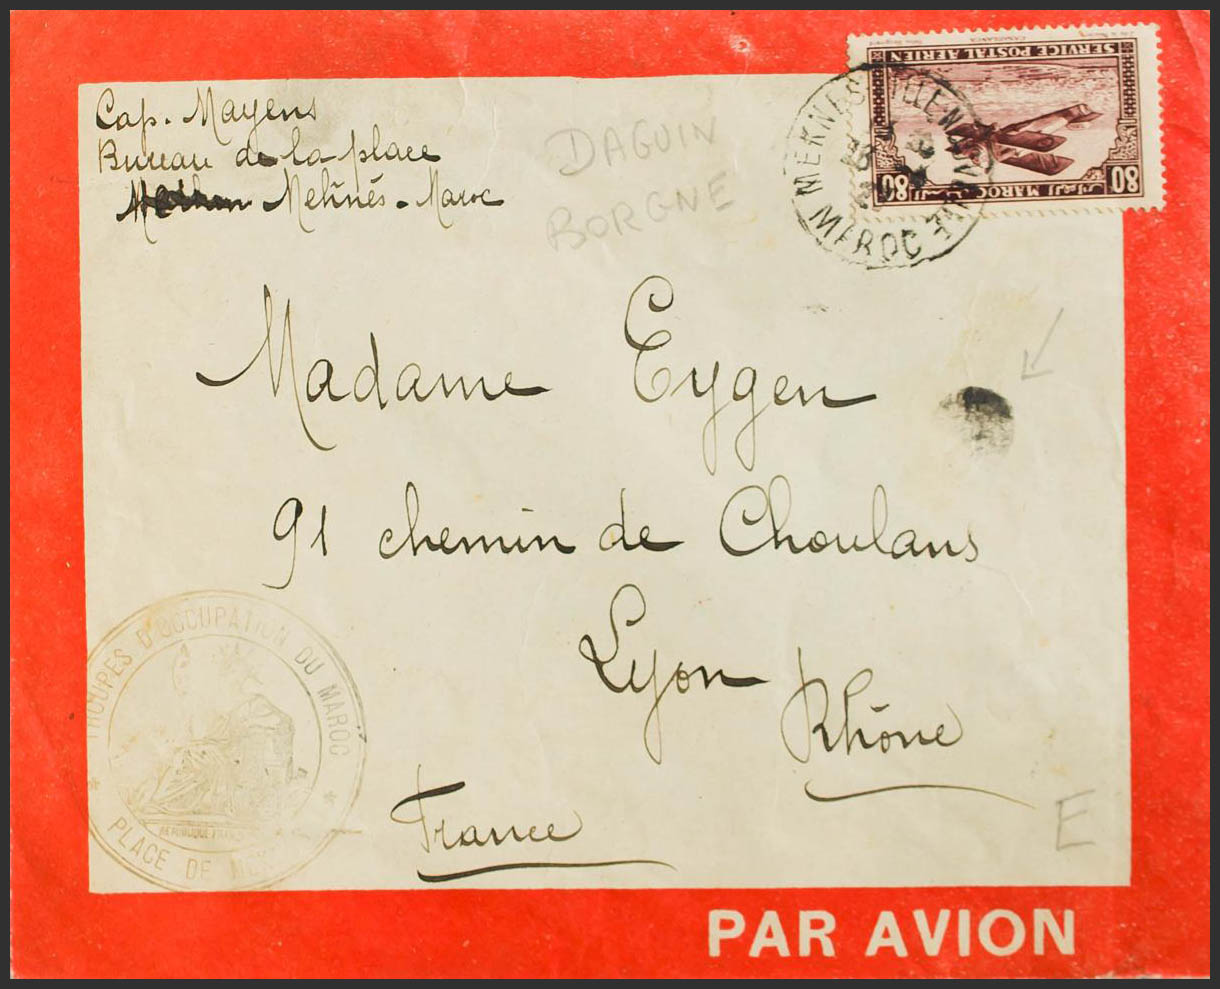 Cap. Mayens
Bureau de la place
Meknès - Maroc
DAGUIN
BORGNE
SERVICE POSTAL AERIEN
80 MAROC 80
MEKNES VILLE-NOUVELLE
MAROC
Madame Eygen
91 chemin de Choulans
Lyon
Rhône
France
TROUPES D'OCCUPATION DU MAROC
REPUBLIQUE FRAN
PLACE DE MEK
E
PAR AVION